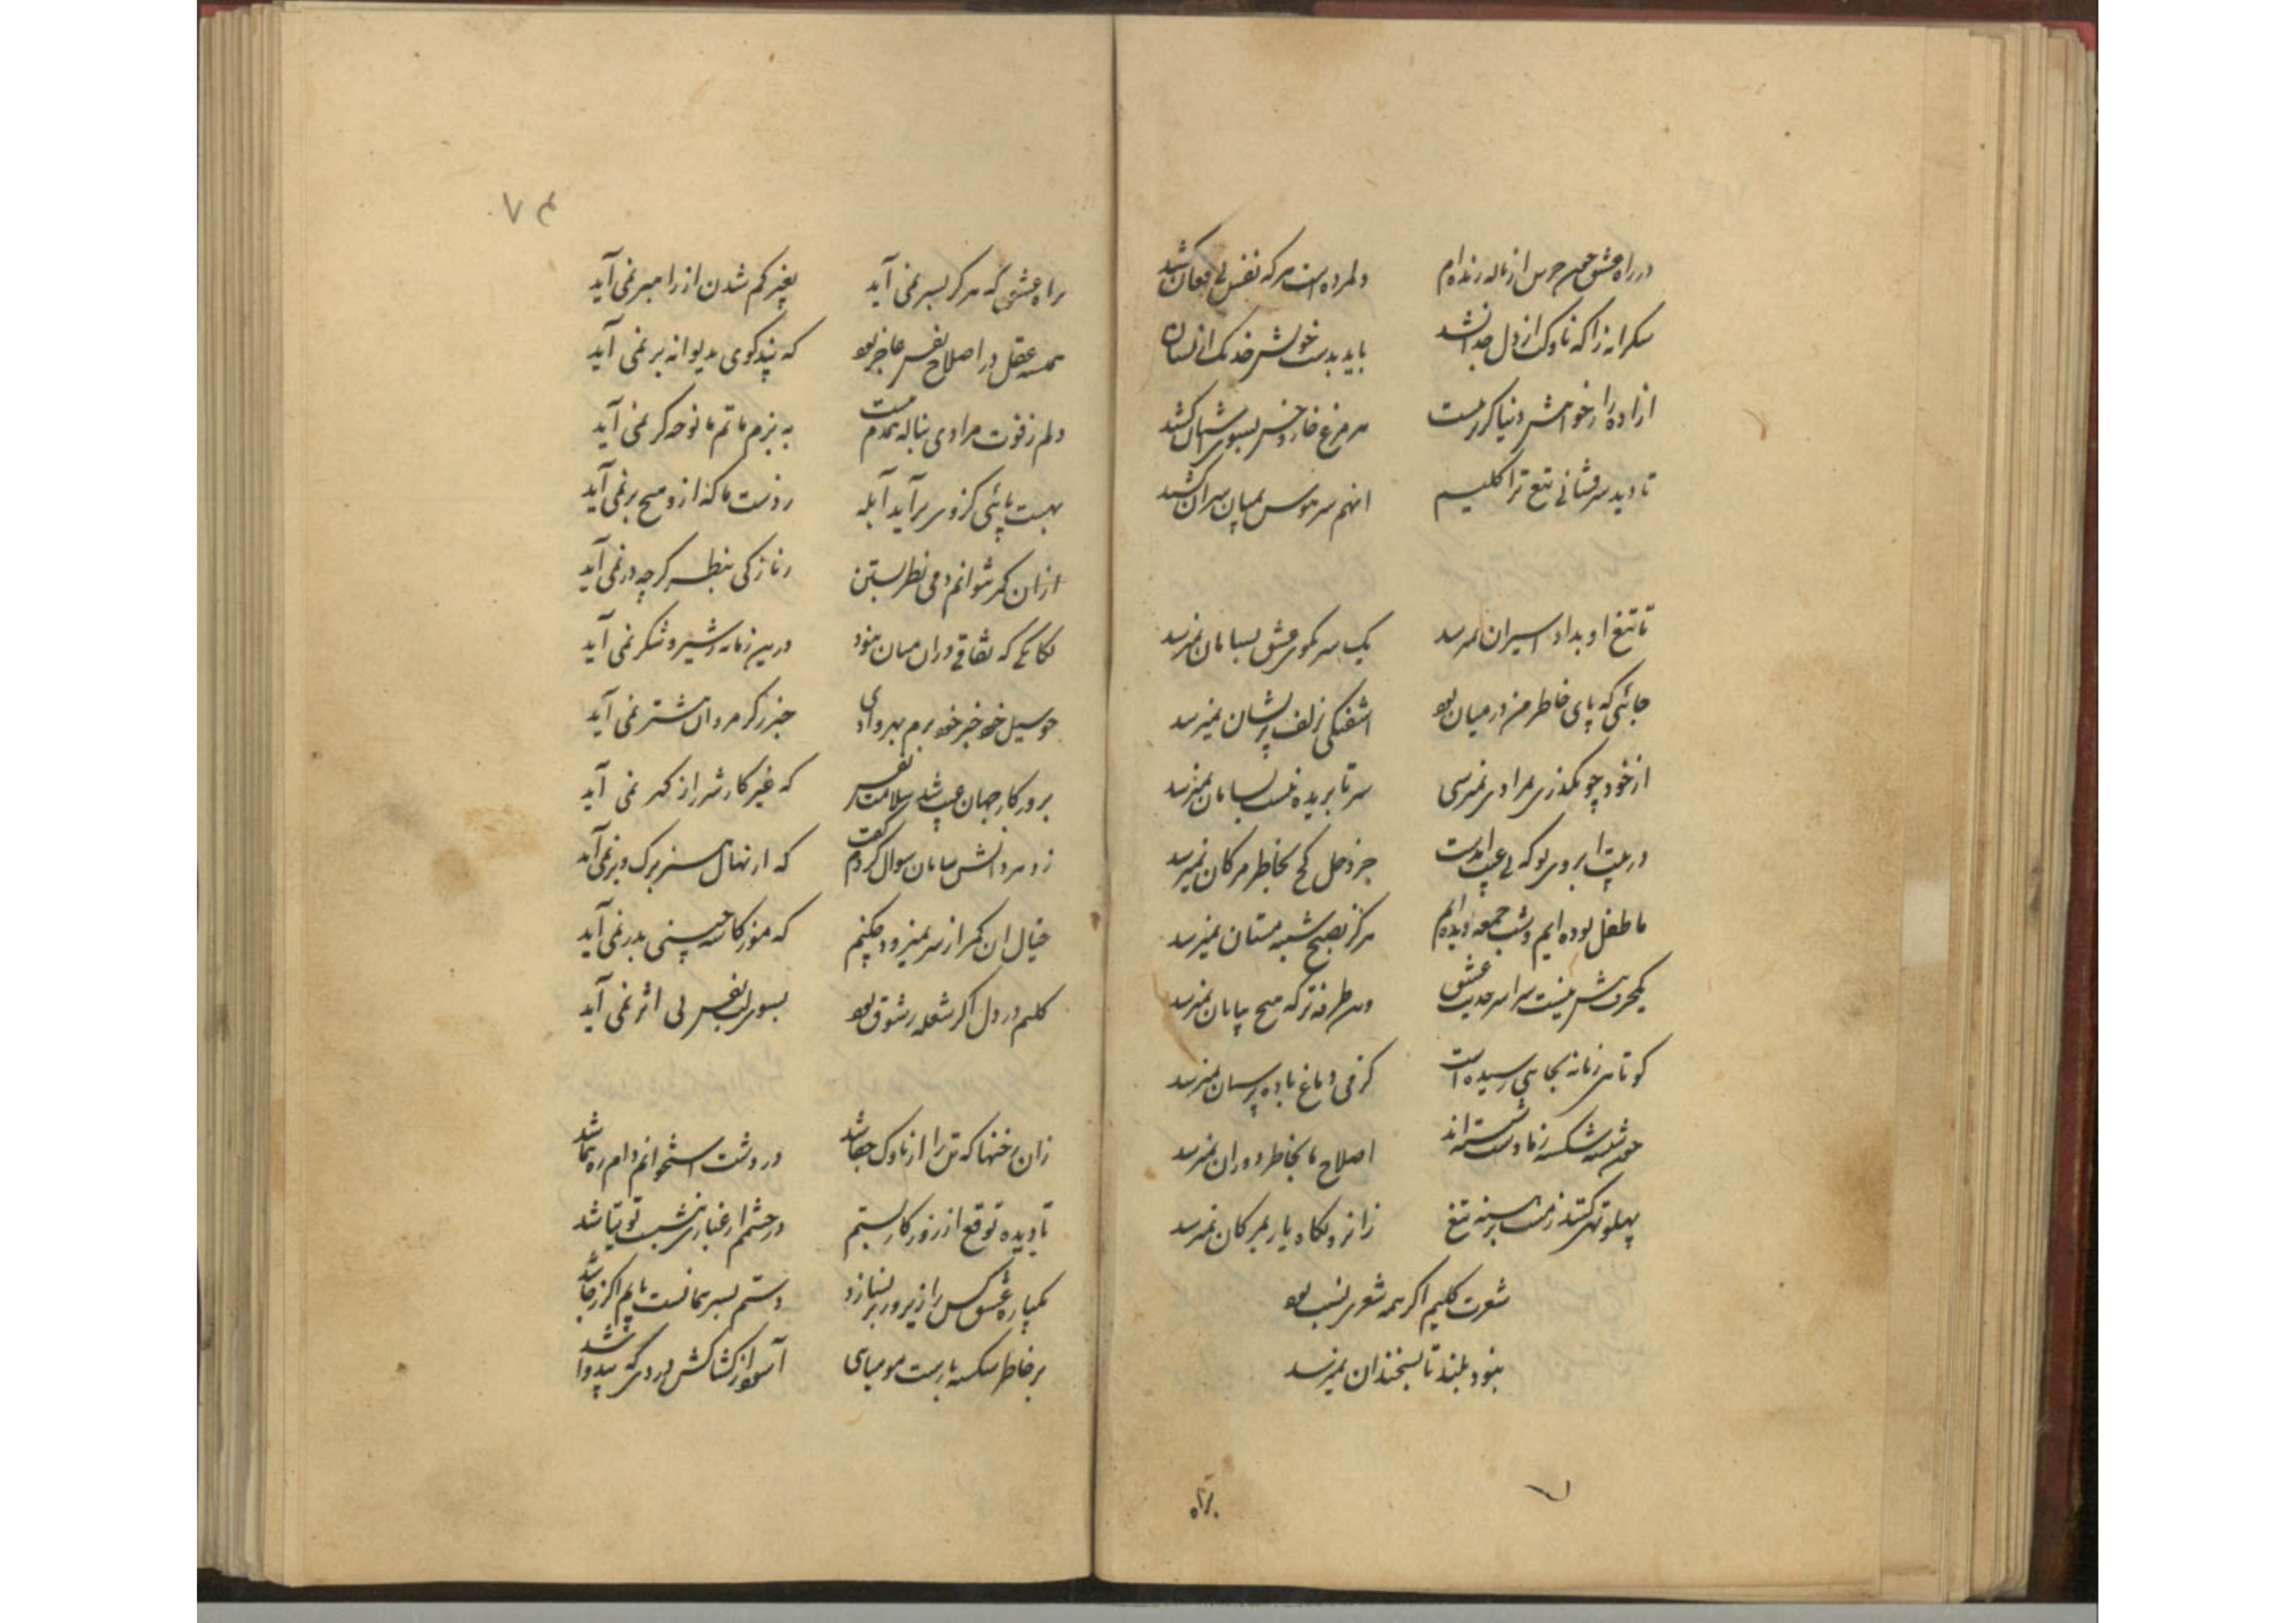 در راه عشق چون جرس از ناله زنده ام دلمرده است هر که نفس بی فغان کشد
شکرانه را که ناوک از دل جدا نشد باید بدست خویش خدنک از نشان
ازاده را ز خواهش دنیا کزیر نیست هر مرغ خار و خس بسوی اشیان کشد
تا دید سرفشانی تیغ ترا کلیم انهم سر هوس بمیان سران کشد
تا تیغ او بداد اسیران نمیرسد یک سر بکوی عشق بسامان نمیرسد
جائی که پای خاطر من در میان بود اشفتکی بزلف پریشان نمیرسد
از خود چو نکذری بمرادی نمیرسی سر تا بریده نیست بسامان نمیرسد
در بیت ابروی تو که بی عیب امدست جز دخل کج بخاطر مژکان نمیرسد
ما طفل بوده ایم و شب جمعه دیده ایم هرکز بصبح شنبه مستان نمیرسد
یکحرف بیش نیست سراسر حدیث عشق وین طرفه تر که هیچ بپایان نمیرسد
کوتاهی زمانه بجایی رسیده است کز می دماغ باده پرستان نمیرسد
چون شیشه شکسته ز ما دست شسته اند اصلاح ما بخاطر دوران نمیرسد
پهلو تهی کند ز برهنه تیغ زانرو نکاه یار بمژکان نمیرسد
شعرت کلیم اکر همه شعری نسب بود
نبود بلند تا بسخندان نمیرسد
براه
۷ م
براه عشق که هرکز بسر نمی آید بغیر کم شدن از راهبر نمی آید
همیشه عقل در اصلاح نفس عاجز بود که پند کوی بدیوانه بر نمی آید
دلم ز فوت مرادی بناله همدم نیست به بزم ماتم ما نوحه کر نمی آید
بهست پائی کزوی برآید آبله ز دست ما که ازو هیچ بر نمی آید
از ان کمر نتوانم دمی نظر بستن ز نازکی بنظر کرچه در نمی آید
یکانکی که نفاقی دران میان نبود درین زمانه ز شیر و شکر نمی آید
چو سیل خود خبر خود برم بهر وادی خبر ز کرمروان پیشتر نمی آید
بروزکار جهان عیب شد سلامت نفس که غیر کار شرر از کهر نمی آید
ز وی سوال کردم کفت که از نهال برک و بر نمی آید
خیال ان کمر از سر نمیرود چکنم که مو ز کاسه چینی بدر نمی آید
کلیم در دل اکر شعله ز شوق بود بسوی لب نفس بی اثر نمی آید
زان رخنها که تن را از ناوک جفا شد در دشت استخوانم دام ره هما شد
تا دیده توقع از روزکار بستم در چشمم ار غباری بنشست توتیا شد
یکباره عشق کس را زیر و زبر نسازد دستم بسر همانست پایم اکر ز جا شد
بر خاطر شکسته بارست مومیایی آسوده از کشاکش دردی که بیدوا شد